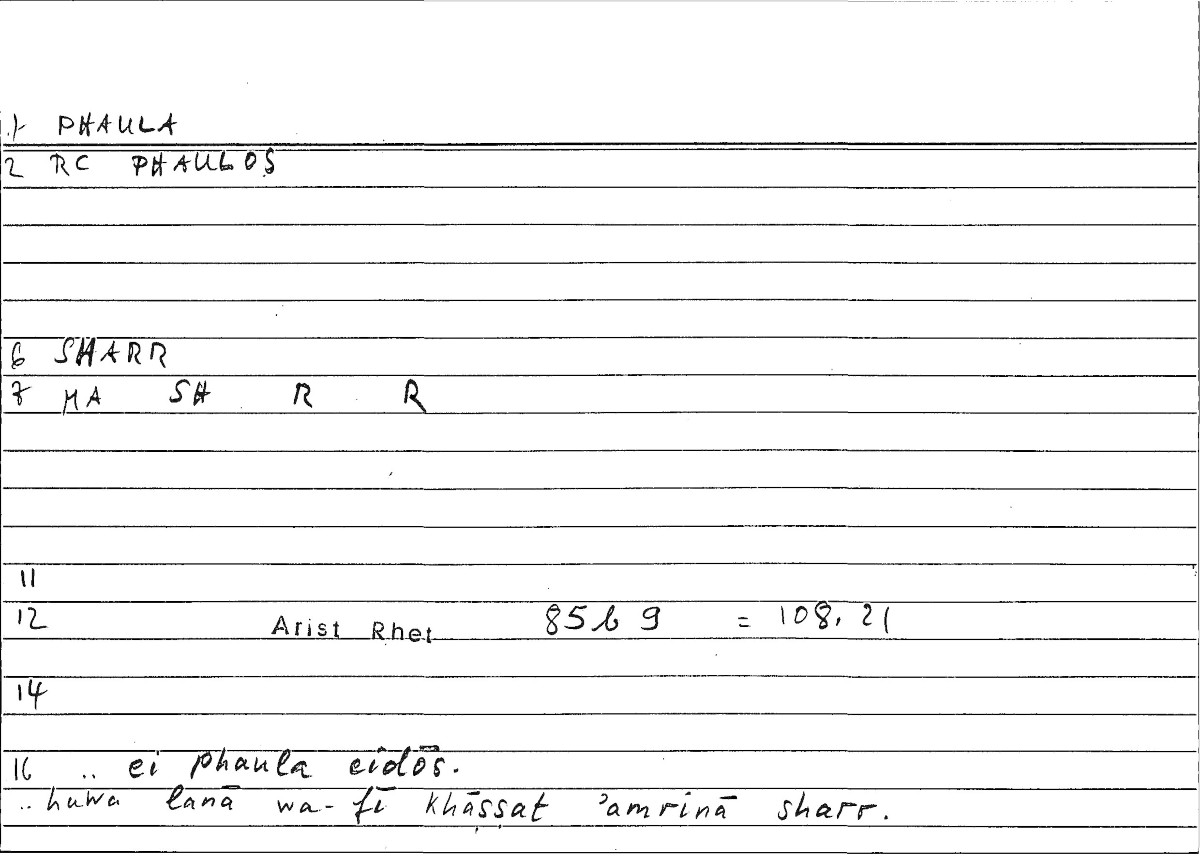 1 PHAULA
2 RC PHAULOS
6 SHARR
7 MA SH R R
11
12 Arist Rhet 85b9 = 108.21
14
16 .. ei phaula eidōs.
.. huwa lanā wa-fī khāṣṣat ’amrinā sharr.